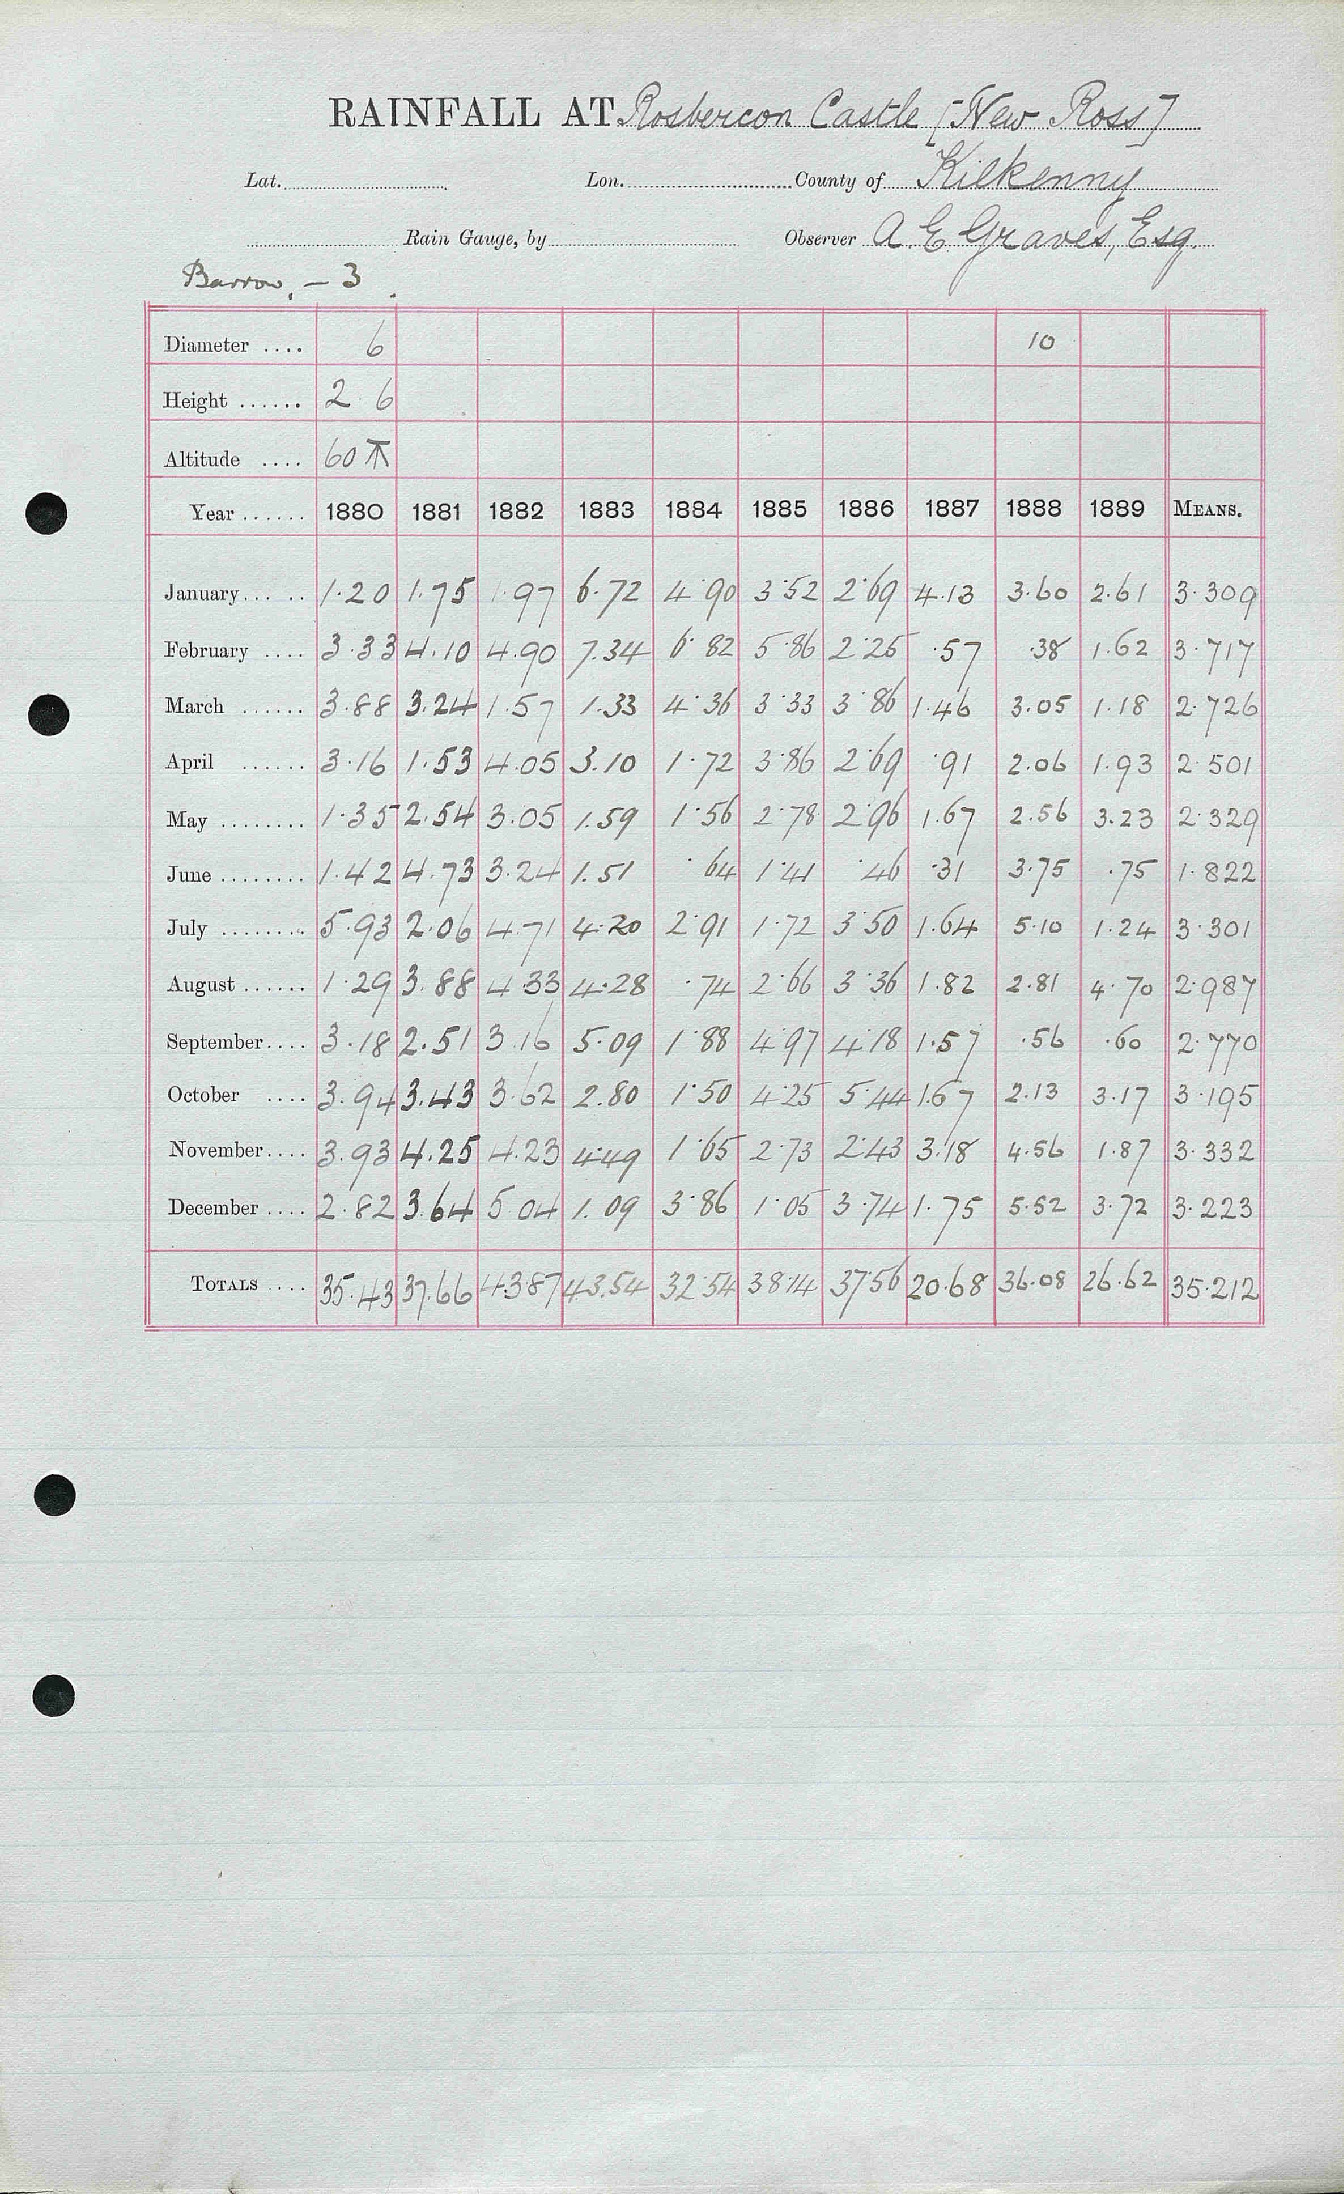 RAINFALL AT Rosbercon Castle [New Ross]
Lat. Lon. County of Kilkenny
Rain Gauge, by Observer A. E. Graves, Esq.
Barrow, - 3
Diameter .... 6 10
Height ...... 2 6
Altitude .... 60
Year ...... 1880 1881 1882 1883 1884 1885 1886 1887 1888 1889 MEANS.
January... .. 1.20 1.75 1.97 6.72 4.90 3.52 2.69 4.13 3.60 2.61 3.309
February .... 3.33 4.10 4.90 7.34 6.82 5.86 2.25 .57 .38 1.62 3.717
March ...... 3.88 3.24 1.57 1.33 4.36 3.33 3.86 1.46 3.05 1.18 2.726
April ...... 3.16 1.53 4.05 3.10 1.72 3.86 2.69 .91 2.06 1.93 2.501
May ........ 1.35 2.54 3.05 1.59 1.56 2.78 2.96 1.67 2.56 3.23 2.329
June ........ 1.42 4.73 3.24 1.51 .64 1.41 .46 .31 3.75 .75 1.822
July ........ 5.93 2.06 4.71 4.20 2.91 1.72 3.50 1.64 5.10 1.24 3.301
August ...... 1.29 3.88 4.33 4.28 .74 2.66 3.36 1.82 2.81 4.70 2.987
September.... 3.18 2.51 3.16 5.09 1.88 4.97 4.18 1.57 .56 .60 2.770
October .... 3.94 3.43 3.62 2.80 1.50 4.25 5.44 1.67 2.13 3.17 3.195
November.... 3.93 4.25 4.23 4.49 1.65 2.73 2.43 3.18 4.56 1.87 3.332
December .... 2.82 3.64 5.04 1.09 3.86 1.05 3.74 1.75 5.52 3.72 3.223
TOTALS .... 35.43 37.66 43.87 43.54 32.54 38.14 37.56 20.68 36.08 26.62 35.212